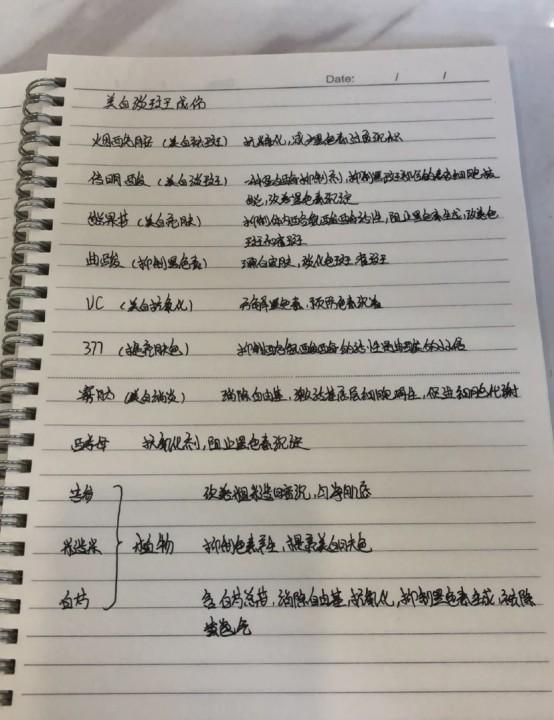 Date: / /
美白淡斑王成份
烟酰胺 (美白淡斑) 抗糖化,减少黑色素过度沉积
传明酸 (美白淡斑) 一种蛋白酶抑制剂,抑制黑斑部位的表皮细胞功能,改善黑色素沉淀
(美白亮肤) 抑制体内酪氨酸酶的活性,阻止黑色素生成,改善色斑和雀斑
曲酸 (抑制黑色素) 嫩白皮肤,淡化色斑 雀斑
VC (美白抗氧化) 黑色素,预防色素沉着
377 (提亮肤色) 抑制酪氨酸酶的活性是曲酸的 倍
(美白消炎) 消除自由基,激活基底层细胞再生,促进细胞代谢
酵母 抗氧化剂,阻止黑色素沉淀
苦参 改善粗糙暗沉,匀净肌底
植物 抑制色素产生,提亮美白肤色
白芍 含白芍总苷,消除自由基,抗氧化,抑制黑色素生成,祛除
黄气